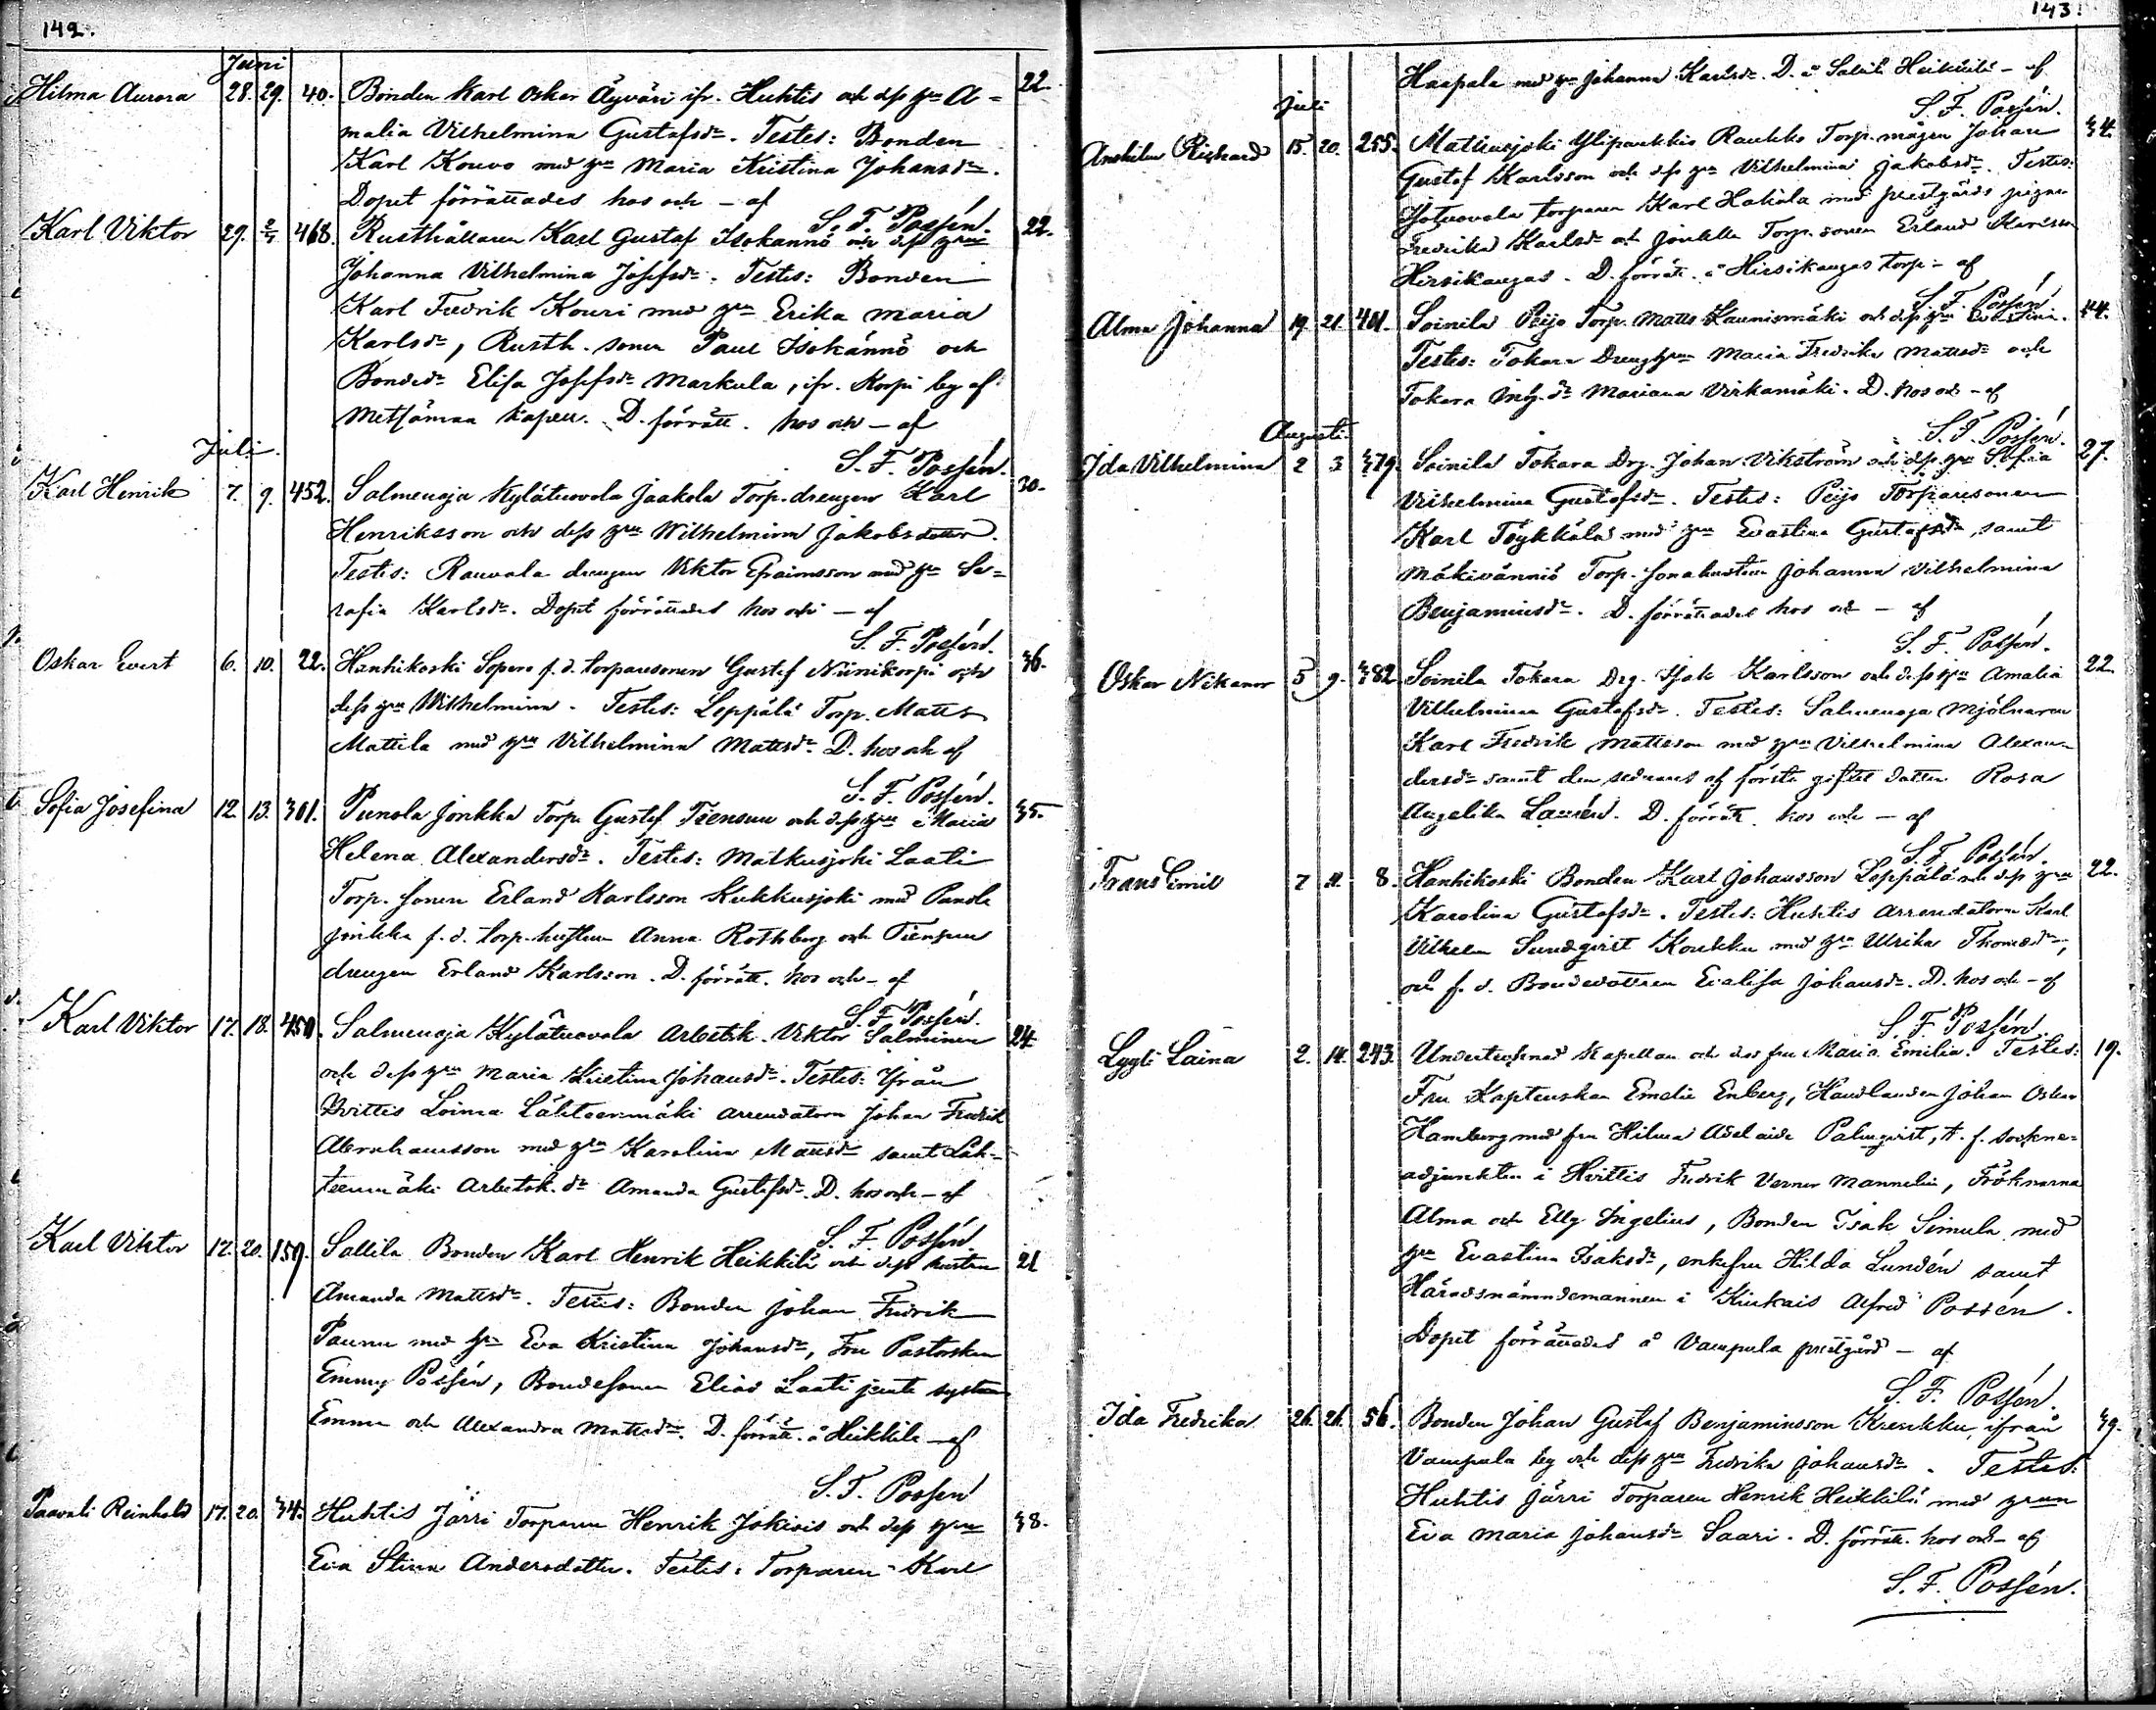 142.
Juni
Hilma Aurora 28. 29. 40. Bonden Karl Oskar Äyväri ifr. Huhtis och dess hru A- 22.
malia Vilhelmina Gustafsdr. Testes: Bonden
Karl Kouvo med hru Maria Kristina Johansdr.
Dopet förrättades hos och - af
S. F. Possén.
Karl Viktor 29. 2/7 468. Rusthållaren Karl Gustaf Isokännö och dess hru 22.
Johanna Vilhelmina Josefsdr. Testes: Bonden
Karl Fredrik Kouri med hru Erika Maria
Karlsdr, Rusth. sonen Paul Isokännö och
Bondedr Elisa Josefsdr Markula, ifr. Korpi by af
Metsämaa kapell. D. förrätt. hos och - af
S. F. Possén.
Juli.
Karl Henrik 7. 9. 452. Salmenoja Kylätuovola Jaakola Torp. drengen Karl 30.
Henriksson och dess hru Wilhelmina Jakobsdotter.
Testes: Rauvola drengen Viktor Efraimsson med hru Se-
rafia Karlsdr. Dopet förrättades hos och - af
S. F. Possén.
Oskar Evert 6. 10. 22. Hanhikoski Sopero f. d. torparesonen Gustaf Niinikorpi och 36.
dess hru Wilhelmina. Testes: Leppälä Torp. Matts
Mattila med hru Vilhelmina Mattsdr. D. hos och af
S. F. Possén.
Sofia Josefina 12. 13. 301. Punola Jonkka Torp. Gustaf Tiensuu och dess hru Maria 35.
Helena Alexandersdr. Testes: Matkusjoki Laati
Torp. sonen Erland Karlsson Kukkusjoki med Punola
Jonkka f. d. torp. hustrun Anna Rothberg och Tiensuu
drengen Erland Karlsson. D. förrätt. hos och - af
S. F. Possén.
Karl Viktor 17. 18. 450. Salmenoja Kylätuovola Arbetsk. Viktor Salminen 24.
och dess hru Maria Kristina Johansdr. Testes: Ifrån
Hvittis Loima Lähteenmäki arrendatorn Johan Fredrik
Abrahamsson med hru Karolina Mattsdr samt Läh-
teenmäki Arbetsk. dr Amanda Gustafsdr. D. hos och - af
S. F. Possén
Karl Viktor 12. 20. 159. Sallila Bonden Karl Henrik Heikkilä och dess hustru 21
Amanda Mattsdr. Testes: Bonden Johan Fredrik
Paunu med hru Eva Kristina Johansdr, Fru Pastorskan
Emmy Possén, Bondesonen Elias Laati jemte systern
Emma och Alexandra Mattsdr. D. förrätt. å Heikkilä - af
S. F. Possén
Paavali Reinhold 17. 20. 34. Huhtis Järri Torparen Henrik Jokisis och dess hru 38.
Eva Stina Andersdotter. Testes: Torparen Karl
143.
Haapala med hru Johanna Karlsdr. D. å Sallila Heikkilä - af
S. F. Possén.
Juli
Anshelm Richard 15. 20. 255. Matkusjoki Ylipaukkio Raukko Torp. mågen Johan 34.
Gustaf Karlsson och dess hru Vilhelmina Jakobsdr. Testes:
Isotuovola torparen Karl Hakala med prestgårds pigan
Fredrika Karlsdr och Jonkka Torp. sonen Erland Karlsson
Hirsikangas. D. förrätt. å Hirsikangas torp - af
S. F. Possén
Alma Johanna 19. 21. 401. Soinila Peijo Torp. Matts Launismäki och dess hru Evastina. 44.
Testes: Tokara Dreng hru Maria Fredrika Mattsdr och
Tokara inh. dr Mariana Virkamäki. D. hos och - af
S. F. Possén.
Augusti.
Ida Vilhelmina 2 3 379. Soinila Tokara Drg. Johan Vikström och dess hru Sofia 27.
Vilhelmina Gustafsdr. Testes: Peijo Torparesonen
Karl Töykkälä med hru Evastina Gustafsdr, samt
Mäkivänniö Torp. sonahustrun Johanna Vilhelmina
Benjaminsdr. D. förrättades hos och - af
S. F. Possén.
Oskar Nikanor 5 9. 382 Soinila Tokara Drg. Isak Karlsson och dess hru Amalia 22.
Vilhelmina Gustafsdr. Testes: Salmenoja Mjölnaren
Karl Fredrik Mattsson med hru Vilhelmina Alexan-
dersdr samt den sednares af förste giftet dotter Rosa
Angelika Laurén. D. förrätt. hos och - af
S. F. Possén.
Frans Emil 7 11. 8. Hanhikoski Bonden Karl Johansson Leppälä och dess hru 22.
Karolina Gustafsdr. Testes: Huhtis Arrendatorn Karl
Vilhelm Sundqvist Koukku med hru Ulrika Thomasdr,
och f. d. Bondedottren Evalisa Johansdr. D. hos och - af
S. F. Possén.
Lyyli Laina 2. 14. 243. Undertecknad Kapellan och des fru Maria Emilia. Testes: 19.
Fru Kaptenskan Emelie Enberg, Handlanden Johan Oskar
Hamberg med fru Hilma Adelaide Palmqvist, t. f. sockne-
adjunkten i Hvittis Fredrik Verner Mannelin, Fröknarna
Alma och Elly Ingelius, Bonden Isak Simula med
hru Evastina Isaksdr, enkefru Hilda Lundén samt
Häradsnämndemannen i Kiukais Alfred Possén.
Dopet förrättades å Vampula prestgård - af
S. F. Possén.
Ida Fredrika 26. 26. 56. Bonden Johan Gustaf Benjaminsson Kreukku, ifrån 39.
Vampula by och dess hru Fredrika Johansdr. Testes:
Huhtis Järri Torparen Henrik Heikkilä med hrun
Eva Maria Johansdr Saari. D. förrätt. hos och - af
S. F. Possén.